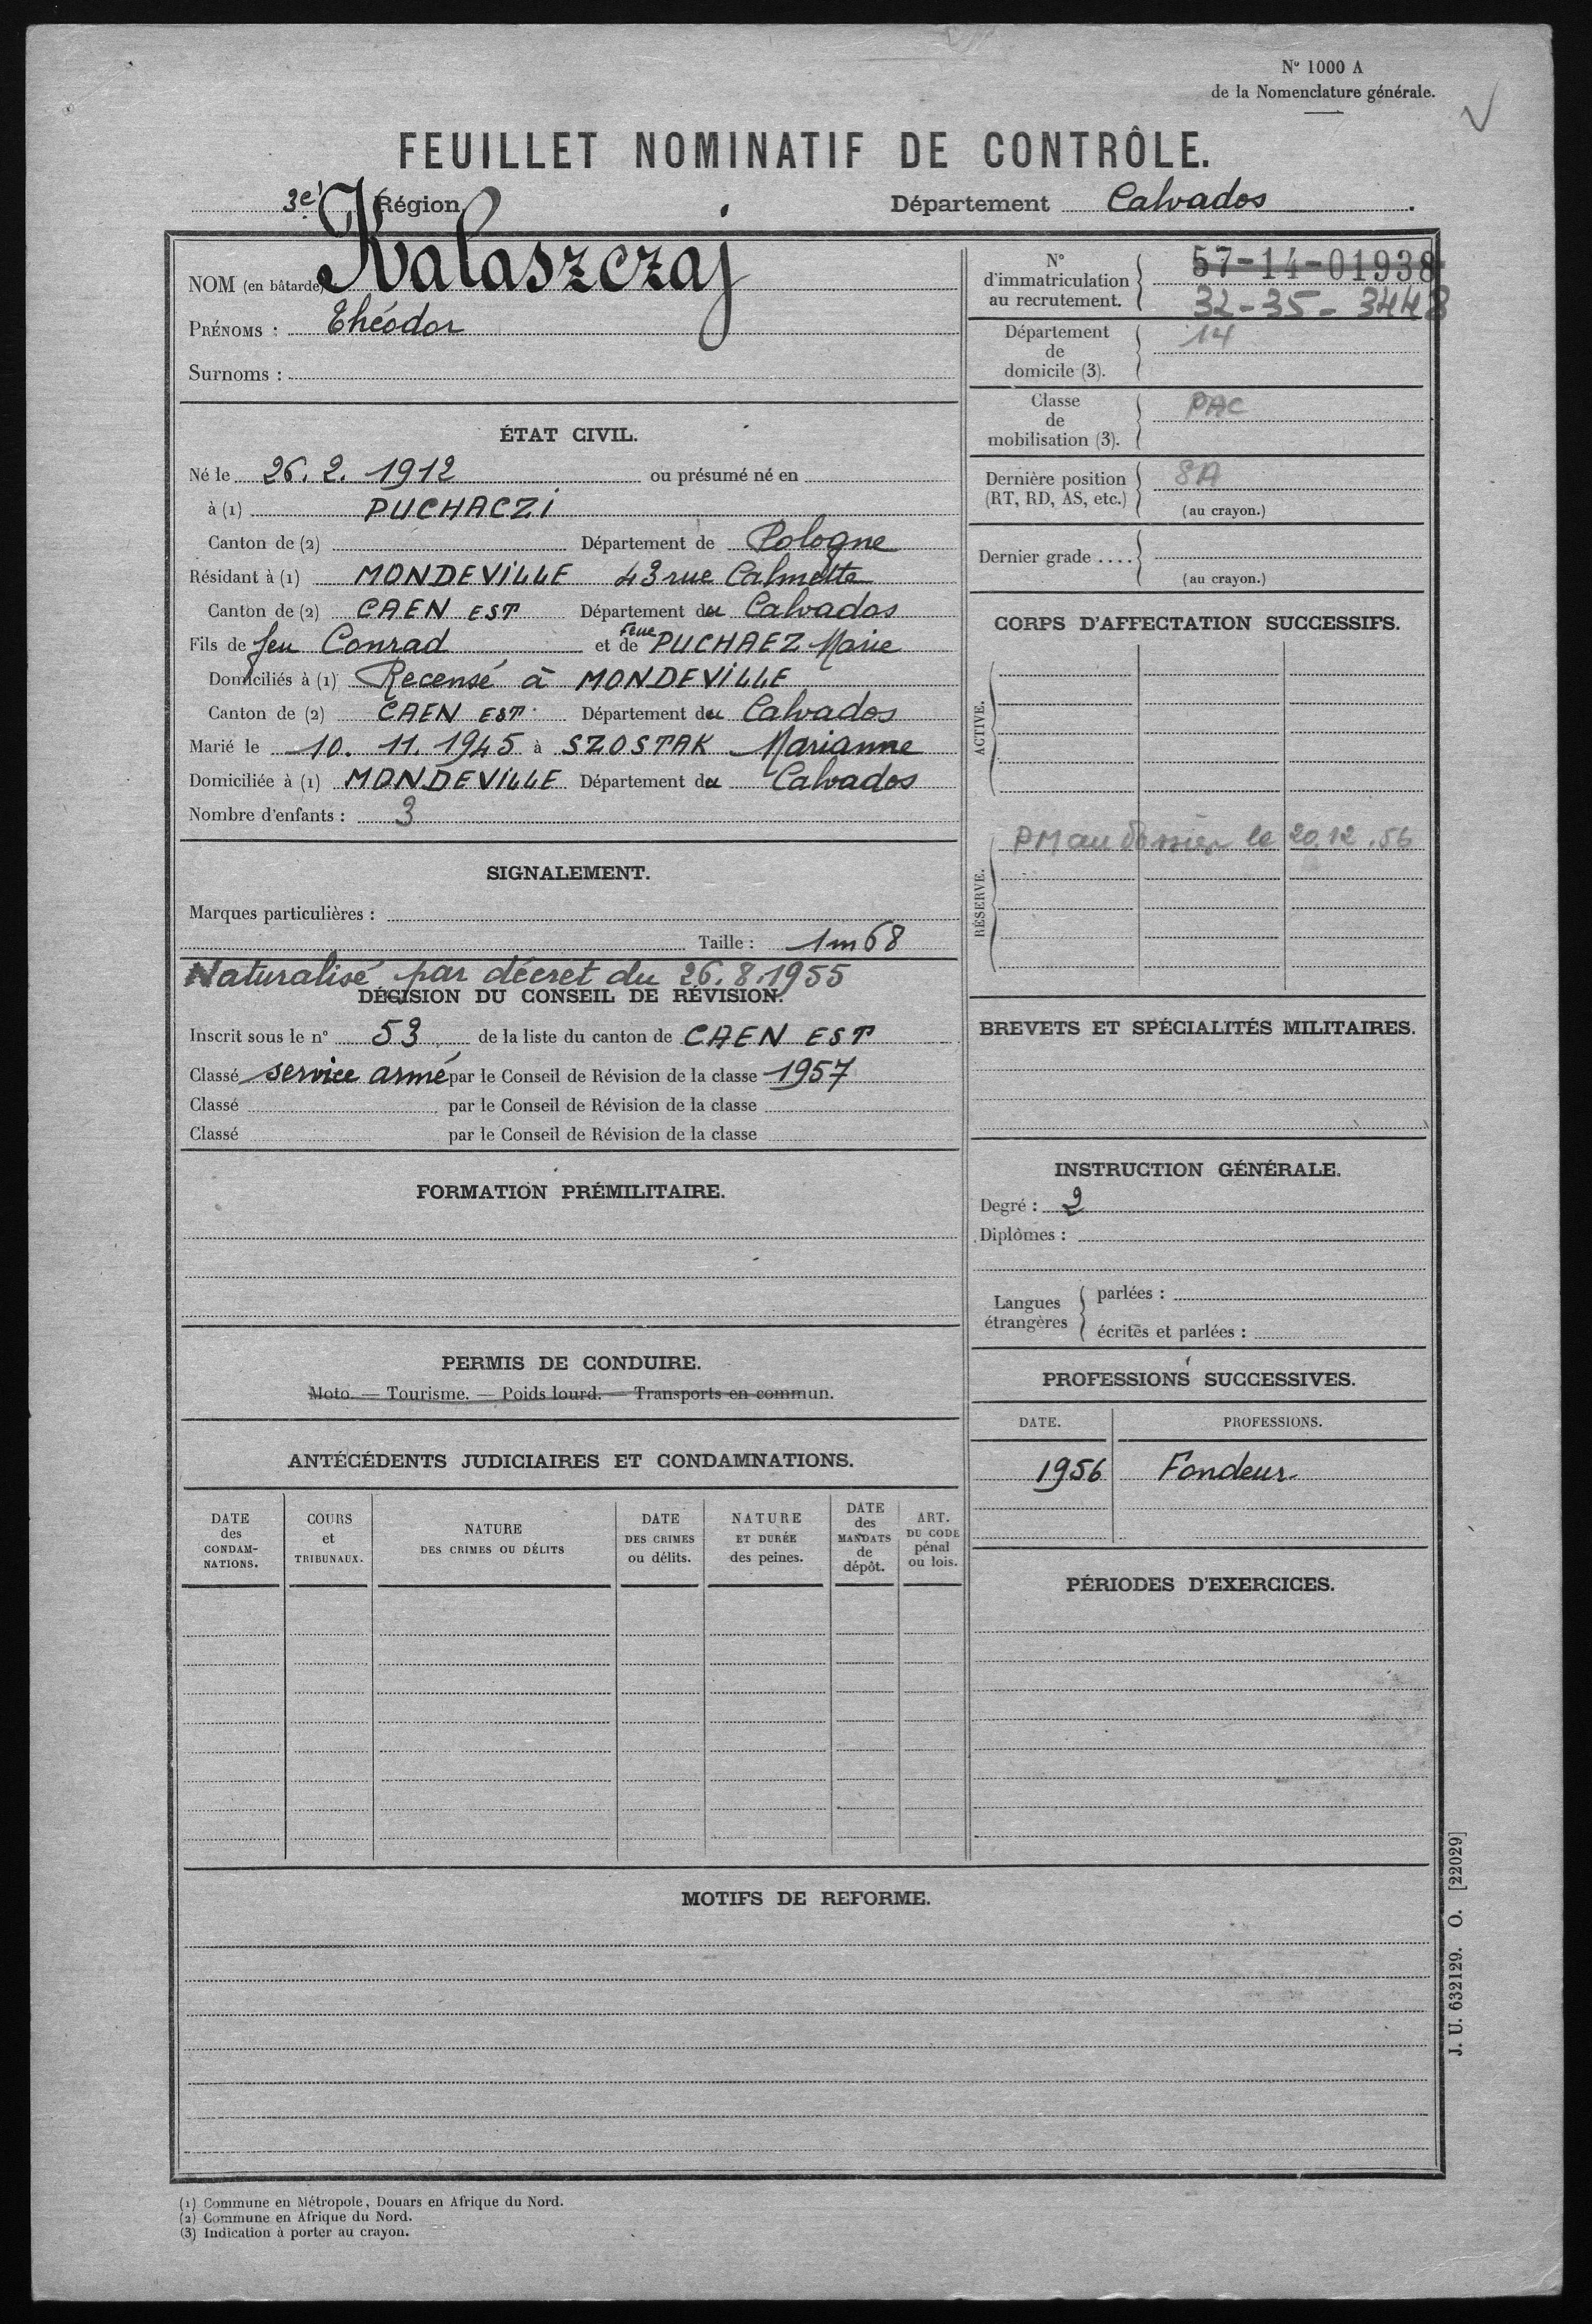 N° 1000 A
de la Nomenclature générale.
FEUILLET NOMINATIF DE CONTRÔLE.
3e Région
Département Calvados.
NOM (en bâtarde) Kalaszczaj
PRÉNOMS : Théodor
Surnoms :
ÉTAT CIVIL.
Né le 26. 2. 1912 ou présumé né en
à (1) PUCHACZI
Canton de (2) Département de Pologne
Résidant à (1) MONDEVILLE 43 rue Calmette
Canton de (2) CAEN EST Département du Calvados
Fils de feu Conrad et de feue PUCHAEZ Marie
Domiciliés à (1) Recensé à MONDEVILLE
Canton de (2) CAEN EST Département du Calvados
Marié le 10. 11. 1945 à SZOSTAK Marianne
Domiciliée à (1) MONDEVILLE Département du Calvados
Nombre d'enfants : 3
SIGNALEMENT.
Marques particulières :
Taille : 1m68
Naturalisé par décret du 26.8.1955
DÉCISION DU CONSEIL DE RÉVISION.
Inscrit sous le n° 53 de la liste du canton de CAEN EST
Classé service armé par le Conseil de Révision de la classe 1957
Classé par le Conseil de Révision de la classe
Classé par le Conseil de Révision de la classe
FORMATION PRÉMILITAIRE.
PERMIS DE CONDUIRE.
Moto. — Tourisme. — Poids lourd. — Transports en commun.
ANTÉCÉDENTS JUDICIAIRES ET CONDAMNATIONS.
DATE des CONDAM-NATIONS.
COURS et TRIBUNAUX.
NATURE DES CRIMES OU DÉLITS
DATE DES CRIMES ou délits.
NATURE ET DURÉE des peines.
DATE des MANDATS de dépôt.
ART. DU CODE pénal ou lois.
N° d'immatriculation au recrutement. 57-14-01938
32-35-3448
Département de domicile (3). 14
Classe de mobilisation (3). PAC
Dernière position (RT, RD, AS, etc.) SA
(au crayon.)
Dernier grade ....
(au crayon.)
CORPS D'AFFECTATION SUCCESSIFS.
ACTIVE.
RÉSERVE.
PM au dossier le 20.12.56
BREVETS ET SPÉCIALITÉS MILITAIRES.
INSTRUCTION GÉNÉRALE.
Degré : 2
Diplômes :
Langues étrangères
parlées :
écrites et parlées :
PROFESSIONS SUCCESSIVES.
DATE. PROFESSIONS.
1956 Fondeur
PÉRIODES D'EXERCICES.
MOTIFS DE REFORME.
J. U. 632129. O. [22029]
(1) Commune en Métropole, Douars en Afrique du Nord.
(2) Commune en Afrique du Nord.
(3) Indication à porter au crayon.